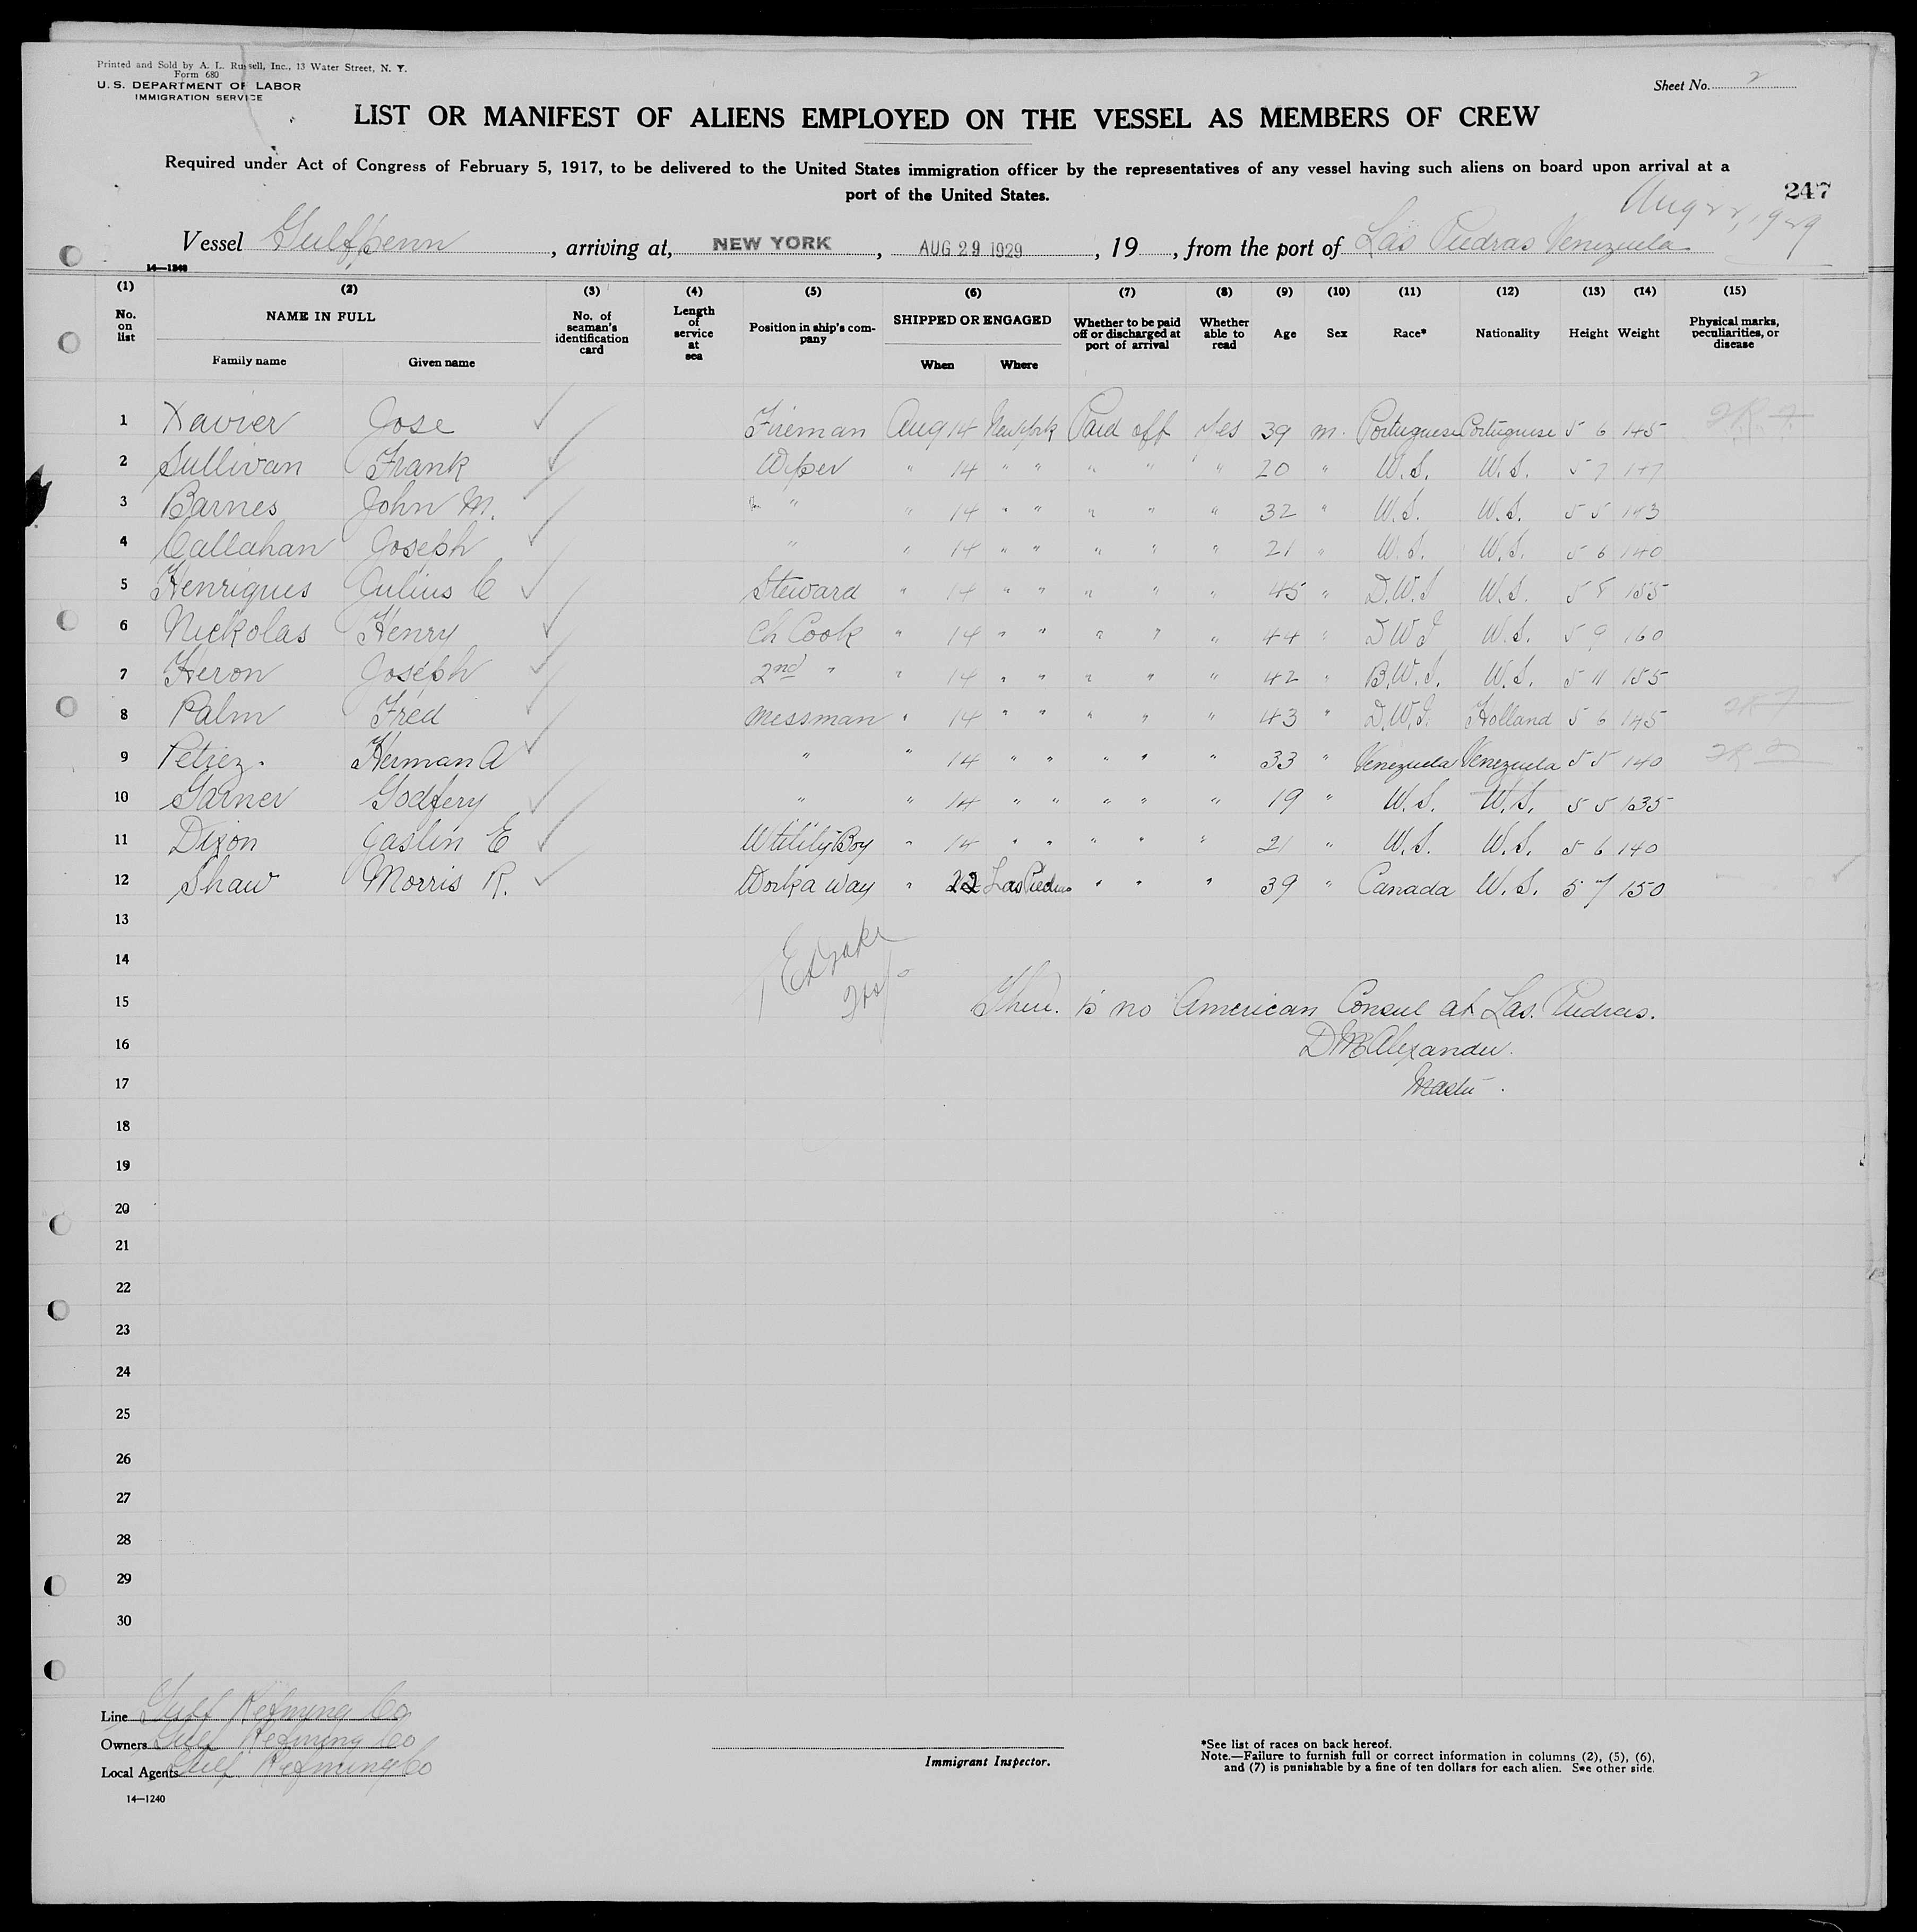 Printed and Sold by A. L. Russell, Inc., 13 Water Street, N. Y.
Form 680
U. S. DEPARTMENT OF LABOR
IMMIGRATION SERVICE
Sheet No. 2
LIST OR MANIFEST OF ALIENS EMPLOYED ON THE VESSEL AS MEMBERS OF CREW
Required under Act of Congress of February 5, 1917, to be delivered to the United States immigration officer by the representatives of any vessel having such aliens on board upon arrival at a
port of the United States.
247
Aug 22, 1929
Vessel Gulfpenn, arriving at, NEW YORK, AUG 29 1929, 19, from the port of Las Piedras Venezuela
14—1240
(1) (2) (3) (4) (5) (6) (7) (8) (9) (10) (11) (12) (13) (14) (15)
No. on list NAME IN FULL Family name Given name No. of seaman's identification card Length of service at sea Position in ship's company SHIPPED OR ENGAGED When Where Whether to be paid off or discharged at port of arrival Whether able to read Age Sex Race* Nationality Height Weight Physical marks, peculiarities, or disease
1 Xavier Jose Fireman Aug 14 New York Paid off Yes 39 m. Portuguese Portuguese 5 6 145
2 Sullivan Frank Wiper " 14 " " " " " 20 " U.S. U.S. 5 7 147
3 Barnes John M. " " 14 " " " " " 32 " U.S. U.S. 5 5 143
4 Callahan Joseph " " 14 " " " " " 21 " U.S. U.S. 5 6 140
5 Henriques Julius C Steward " 14 " " " " " 45 " D.W.I U.S. 5 8 155
6 Nickolas Henry Ch Cook " 14 " " " " " 44 " D W I U.S. 5 9 160
7 Heron Joseph 2nd " " 14 " " " " " 42 " B.W.I. U.S. 5 11 155
8 Palm Fred Messman " 14 " " " " " 43 " D.W.I. Holland 5 6 145
9 Petriez. Herman A " " 14 " " " " " 33 " Venezuela Venezuela 5 5 140
10 Garner Godfery " " 14 " " " " " 19 " U.S. U.S. 5 5 135
11 Dixon Gaslin E Utility Boy " 14 " " " " " 21 " U.S. U.S. 5 6 140
12 Shaw Morris R. Worka way " 22 Las Piedras " " " 39 " Canada U.S. 5 7 150
13
14
15 There is no American Consul at Las. Piedras.
16 D M Alexander.
17 Master.
18
19
20
21
22
23
24
25
26
27
28
29
30
Line Gulf Refining Co
Owners Gulf Refining Co
Local Agents Gulf Refining Co
Immigrant Inspector.
*See list of races on back hereof.
Note.—Failure to furnish full or correct information in columns (2), (5), (6),
and (7) is punishable by a fine of ten dollars for each alien. See other side.
14—1240